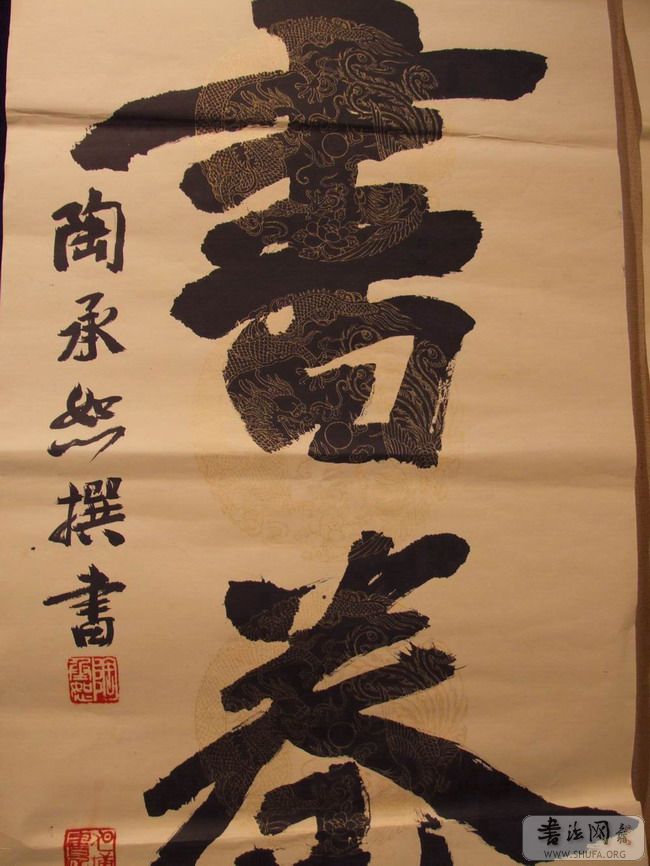 書卷
陶承恕撰書
書法网
WWW.SHUFA.ORG